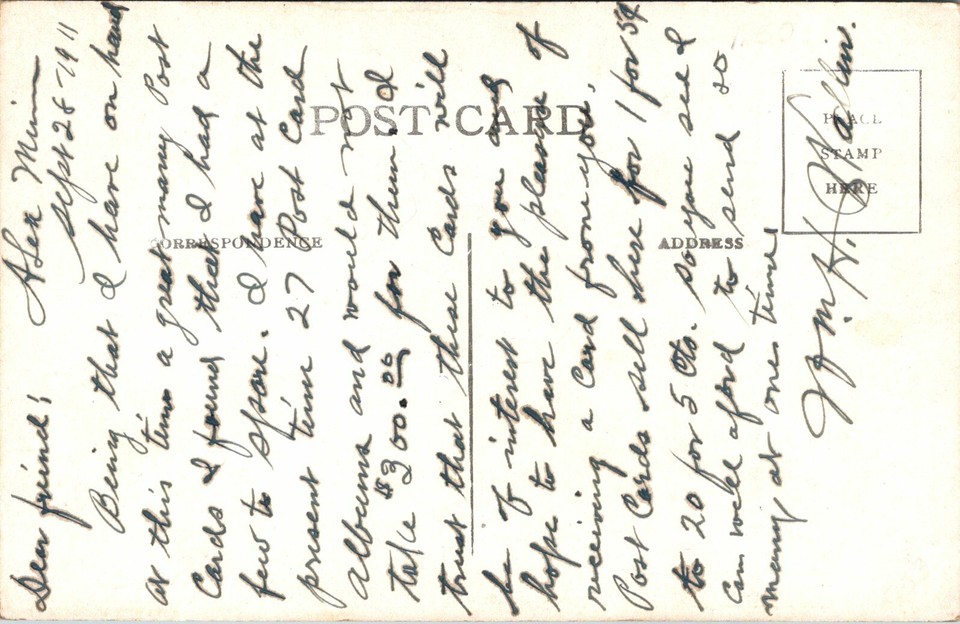 Alex Minn
Sept 26-1911
Dear friend;
Being that I have on hand
at this time a great many Post
Cards I found that I had a
few to spare. I have at the
present time 27 Post Card
albums and would not
take $300.00 for them I
trust that these Cards will
be of interest to you and
hope to have the pleasure of
receiving a Card from you.
Post Cards sell here for 1 for 5¢
to 20 for 5 cts. so you see I
can well afford to send so
many at one time.
Wm H.
POST CARD
CORRESPONDENCE
ADDRESS
PLACE
STAMP
HERE